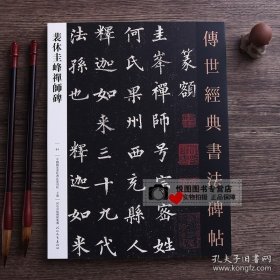 傳世經典書法碑帖
篆額
圭峯禪師号宗密姓
何氏果州西充縣人
釋迦如来三十九代
法孫也釋迦如来
裴休圭峰禪師碑
孔夫子旧书网